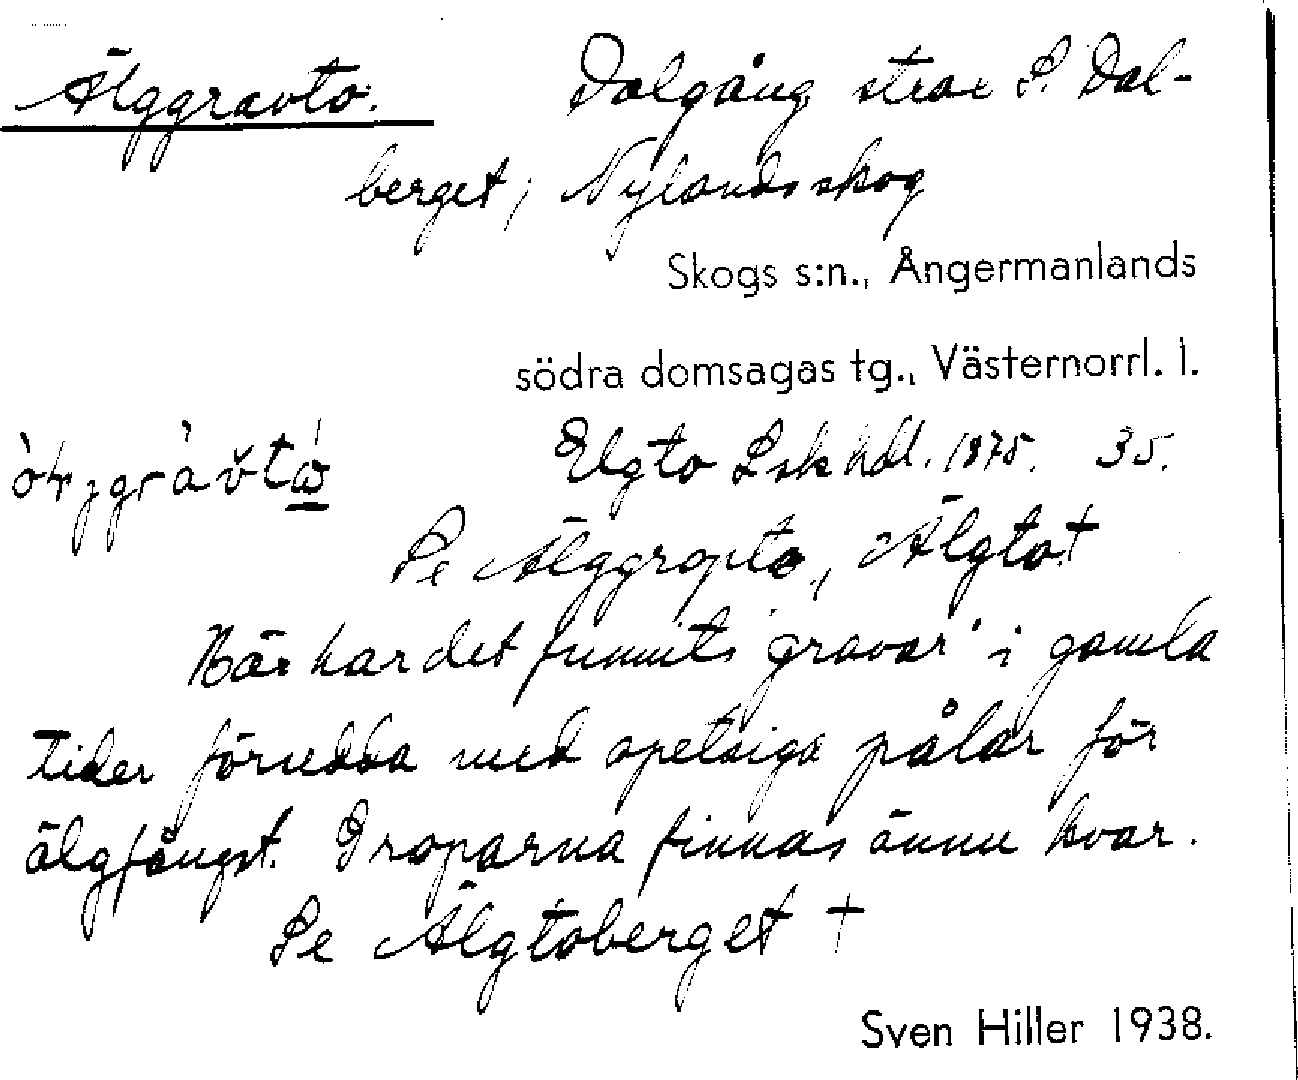 Älggravto. Dalgång strax S. Dal-
berget, Nylands skog
Skogs s:n., Ångermanlands
södra domsagas tg., Västernorrl. l.
Elgto Lsk hdl. 1875. 35.
Se Älggropto, Älgto †
Här har det funnits "gravar" i gamla
tider försedda med spetsiga pålar för
älgfångst. Groparna finnas ännu kvar.
Se Älgtoberget †
Sven Hiller 1938.